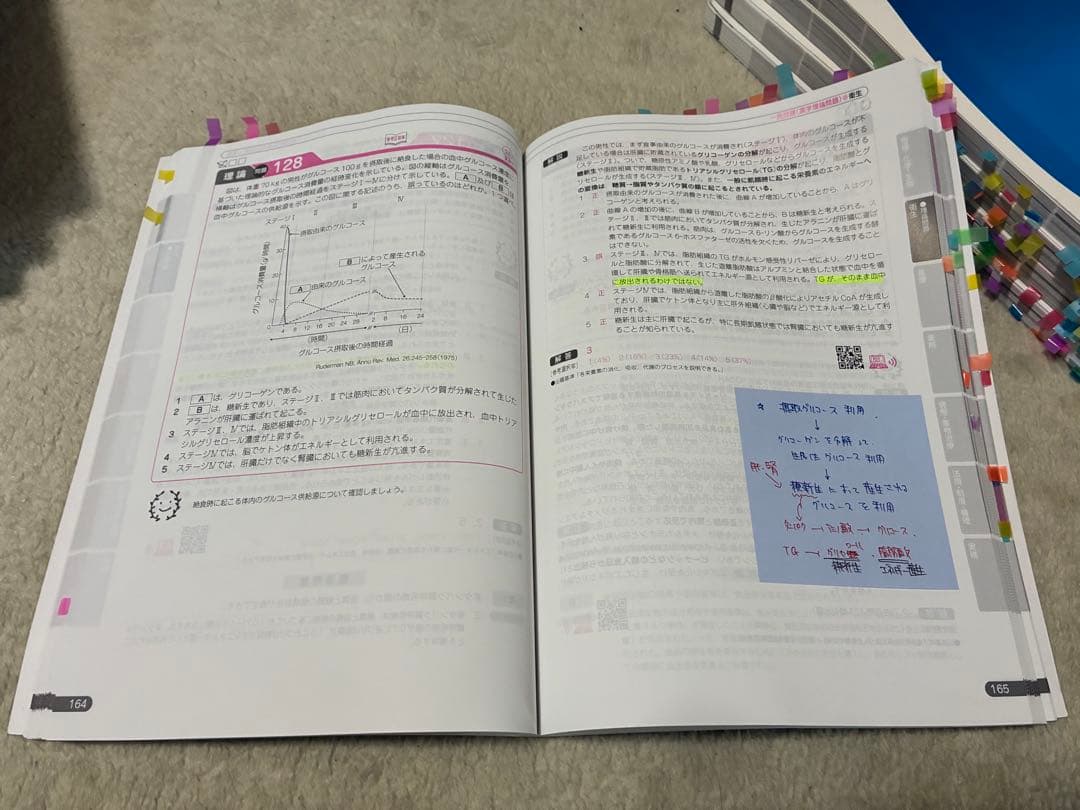 理論 問題 128
図は、体重70kgの男性がグルコース100gを摂取後に絶食した場合の血中グルコース濃度に
基づいた理論的なグルコース消費量の経時変化を示している。図の縦軸はグルコース消費量を、
横軸はグルコース摂取後の時間経過をステージⅠ~Ⅳに分けて示している。 A 及び B は
血中グルコースの供給源を示す。この図に関する記述のうち、誤っているのはどれか。1つ選べ。
ステージⅠ Ⅱ Ⅲ Ⅳ
摂取由来のグルコース
B によって産生される
グルコース
A 由来のグルコース
グルコース消費量(g/時間)
40
30
20
10
0
4 8 12 16 20 24 28 2 8 16 24
(時間) (日)
グルコース摂取後の時間経過
Ruderman NB, Annu Rev. Med. 26:245-258(1975)
1 A は、グリコーゲンである。
2 B は、糖新生であり、ステージⅡ、Ⅲでは筋肉においてタンパク質が分解されて生じた
アラニンが肝臓に運ばれて起こる。
3 ステージⅡ、Ⅳでは、脂肪組織中のトリアシルグリセロールが血中に放出され、血中トリア
シルグリセロール濃度が上昇する。
4 ステージⅣでは、脳でケトン体がエネルギーとして利用される。
5 ステージⅣでは、肝臓だけでなく腎臓においても糖新生が亢進する。
絶食時に起こる体内のグルコース供給源について確認しましょう。
164
一般問題(薬学理論問題) 衛生
解説
この男性では、まず食事由来のグルコースが消費され(ステージⅠ)、体内のグルコースが不
足している場合は肝臓に貯蔵されているグリコーゲンの分解が起こり、グルコースが生成する
(ステージⅡ)。ついで、糖原性アミノ酸や乳酸、グリセロールなどからグルコースを生成する
糖新生や脂肪組織で貯蔵脂肪であるトリアシルグリセロール(TG)の分解が起こり、脂肪酸とグ
リセロールが生成する(ステージⅡ、Ⅳ)。また、一般に飢餓時に起こる栄養素のエネルギーへ
の変換は、糖質→脂質やタンパク質の順に起こるとされている。
1 正 摂取由来のグルコースが消費された後に、曲線Aが増加していることから、Aはグリ
コーゲンと考えられる。
2 正 曲線Aの増加の後に、曲線Bが増加していることから、Bは糖新生と考えられる。ス
テージⅡ、Ⅲでは筋肉においてタンパク質が分解され、生じたアラニンが肝臓に運ば
れて糖新生に利用される。筋肉は、グルコース6-リン酸からグルコースを生成する酵
素であるグルコース6-ホスファターゼの活性を欠くため、グルコースを生成すること
はできない。
3 誤 ステージⅡ、Ⅳでは、脂肪組織のTGがホルモン感受性リパーゼにより、グリセロー
ルと脂肪酸に分解されて、生じた遊離脂肪酸はアルブミンと結合した状態で血中を循
環して肝臓や骨格筋へ送られてエネルギー源として利用される。TGが、そのまま血中
に放出されるわけではない。
4 正 ステージⅣでは、脂肪組織から遊離した脂肪酸のβ酸化によりアセチルCoAが生成し
ており、肝臓でケトン体となり主に肝外組織(心臓や脳など)でエネルギー源として利
用される。
5 正 糖新生は主に肝臓で起こるが、特に長期飢餓状態では腎臓においても糖新生が亢進す
ることが知られている。
解答 3
1(4%) 2(18%) 3(23%) 4(14%) 5(37%)
「各栄養素の消化、吸収、代謝のプロセスを説明できる。」
☆ 摂取グルコース利用.
↓
グリコーゲンを分解して
生じたグルコース利用
↓
肝・腎
糖新生によって産生される
グルコースを利用
→ グルコース.
TG → グリセロール・脂肪酸
糖新生 エネルギー産生
衛生
165